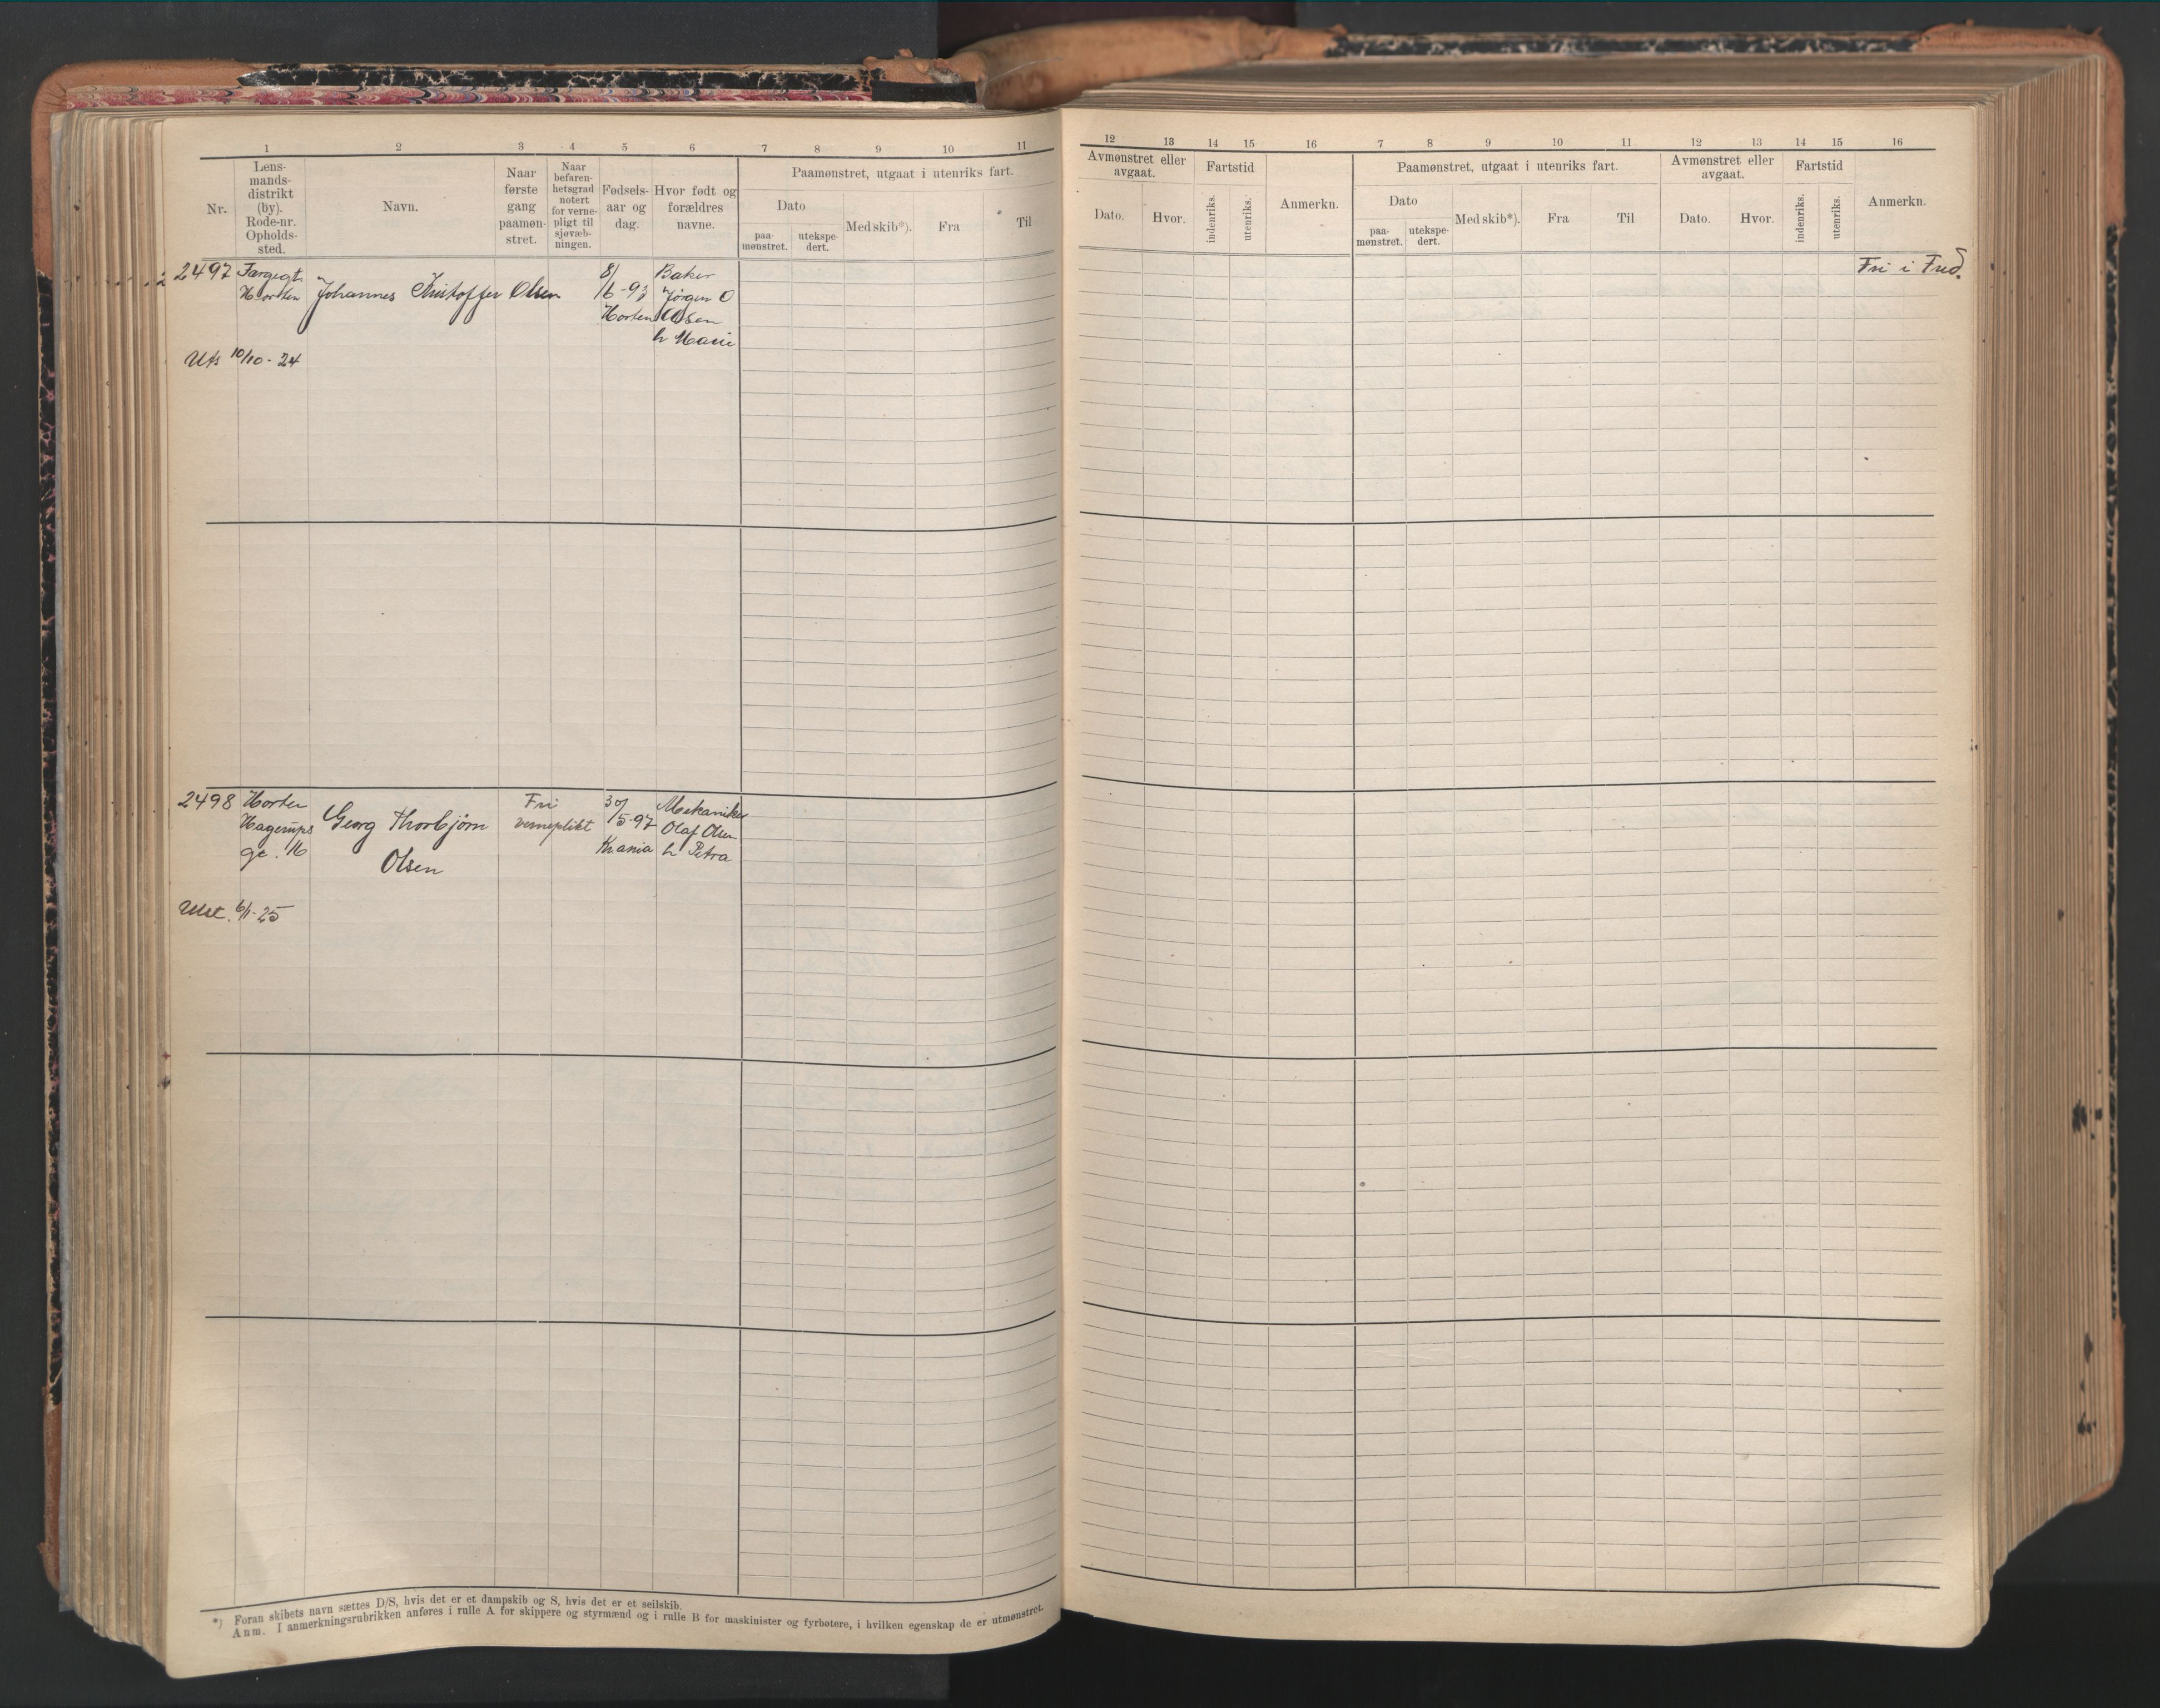 1 2 3 4 5 6 7 8 9 10 11
Nr.
Lens-
mands-
distrikt
(by).
Rode-nr.
Opholds-
sted.
Navn.
Naar
første
gang
paamøn-
stret.
Naar
befaren-
hetsgrad
notert
for verne-
pligt til
sjøvæb-
ningen.
Fødsels-
aar og
dag.
Hvor født og
forældres
navne.
Paamønstret, utgaat i utenriks fart.
Dato
paa-
mønstret.
utekspe-
dert.
Med skib*).
Fra
Til
2497
Horten
Johannes Kristoffer Olsen
8/
/6-93
Horten
Baker
Jørgen O
Olsen
h Marie
Uts 10/10-24
2498
Horten
Hagerups
gt. 16
Georg Thorbjørn
Olsen
Fri
verneplikt
30/
/5-97
Kr.ania
Mekaniker
Olaf Olsen
h Petra
Utst. 6/1-25
*) Foran skibets navn sættes D/S, hvis det er et dampskib og S, hvis det er et seilskib.
Anm. I anmerkningsrubrikken anføres i rulle A for skippere og styrmænd og i rulle B for maskinister og fyrbøtere, i hvilken egenskap de er utmønstret.
12 13 14 15 16 7 8 9 10 11 12 13 14 15 16
Avmønstret eller
avgaat.
Dato.
Hvor.
Fartstid
indenriks.
utenriks.
Anmerkn.
Paamønstret, utgaat i utenriks fart.
Dato
paa-
mønstret.
utekspe-
dert.
Med skib*).
Fra
Til
Avmønstret eller
avgaat.
Dato.
Hvor.
Fartstid
indenriks.
utenriks.
Anmerkn.
Fri i Fred.